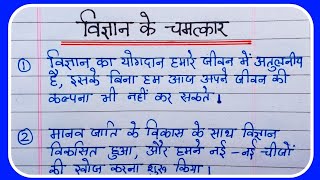 विज्ञान के चमत्कार
① विज्ञान का योगदान हमारे जीवन में अतुलनीय
है, इसके बिना हम आज अपने जीवन की
कल्पना भी नहीं कर सकते।
② मानव जाति के विकास के साथ विज्ञान
विकसित हुआ, और हमने नई-नई चीजों
की खोज करना शुरू किया।